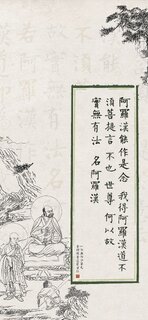 阿羅漢能作是念 我得阿羅漢道不
須菩提言 不也 世尊 何以故
實無有法 名阿羅漢